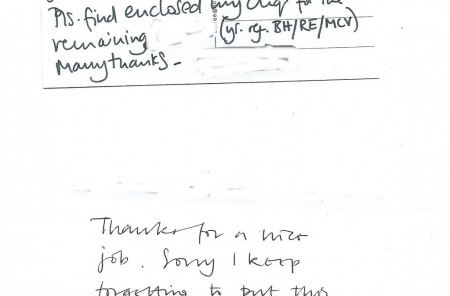 Pls. find enclosed my chq for the
remaining (yr. rg. BH/RE/MCV)
Many thanks -
Thanks for a nice
job. Sorry I keep
forgetting to put this